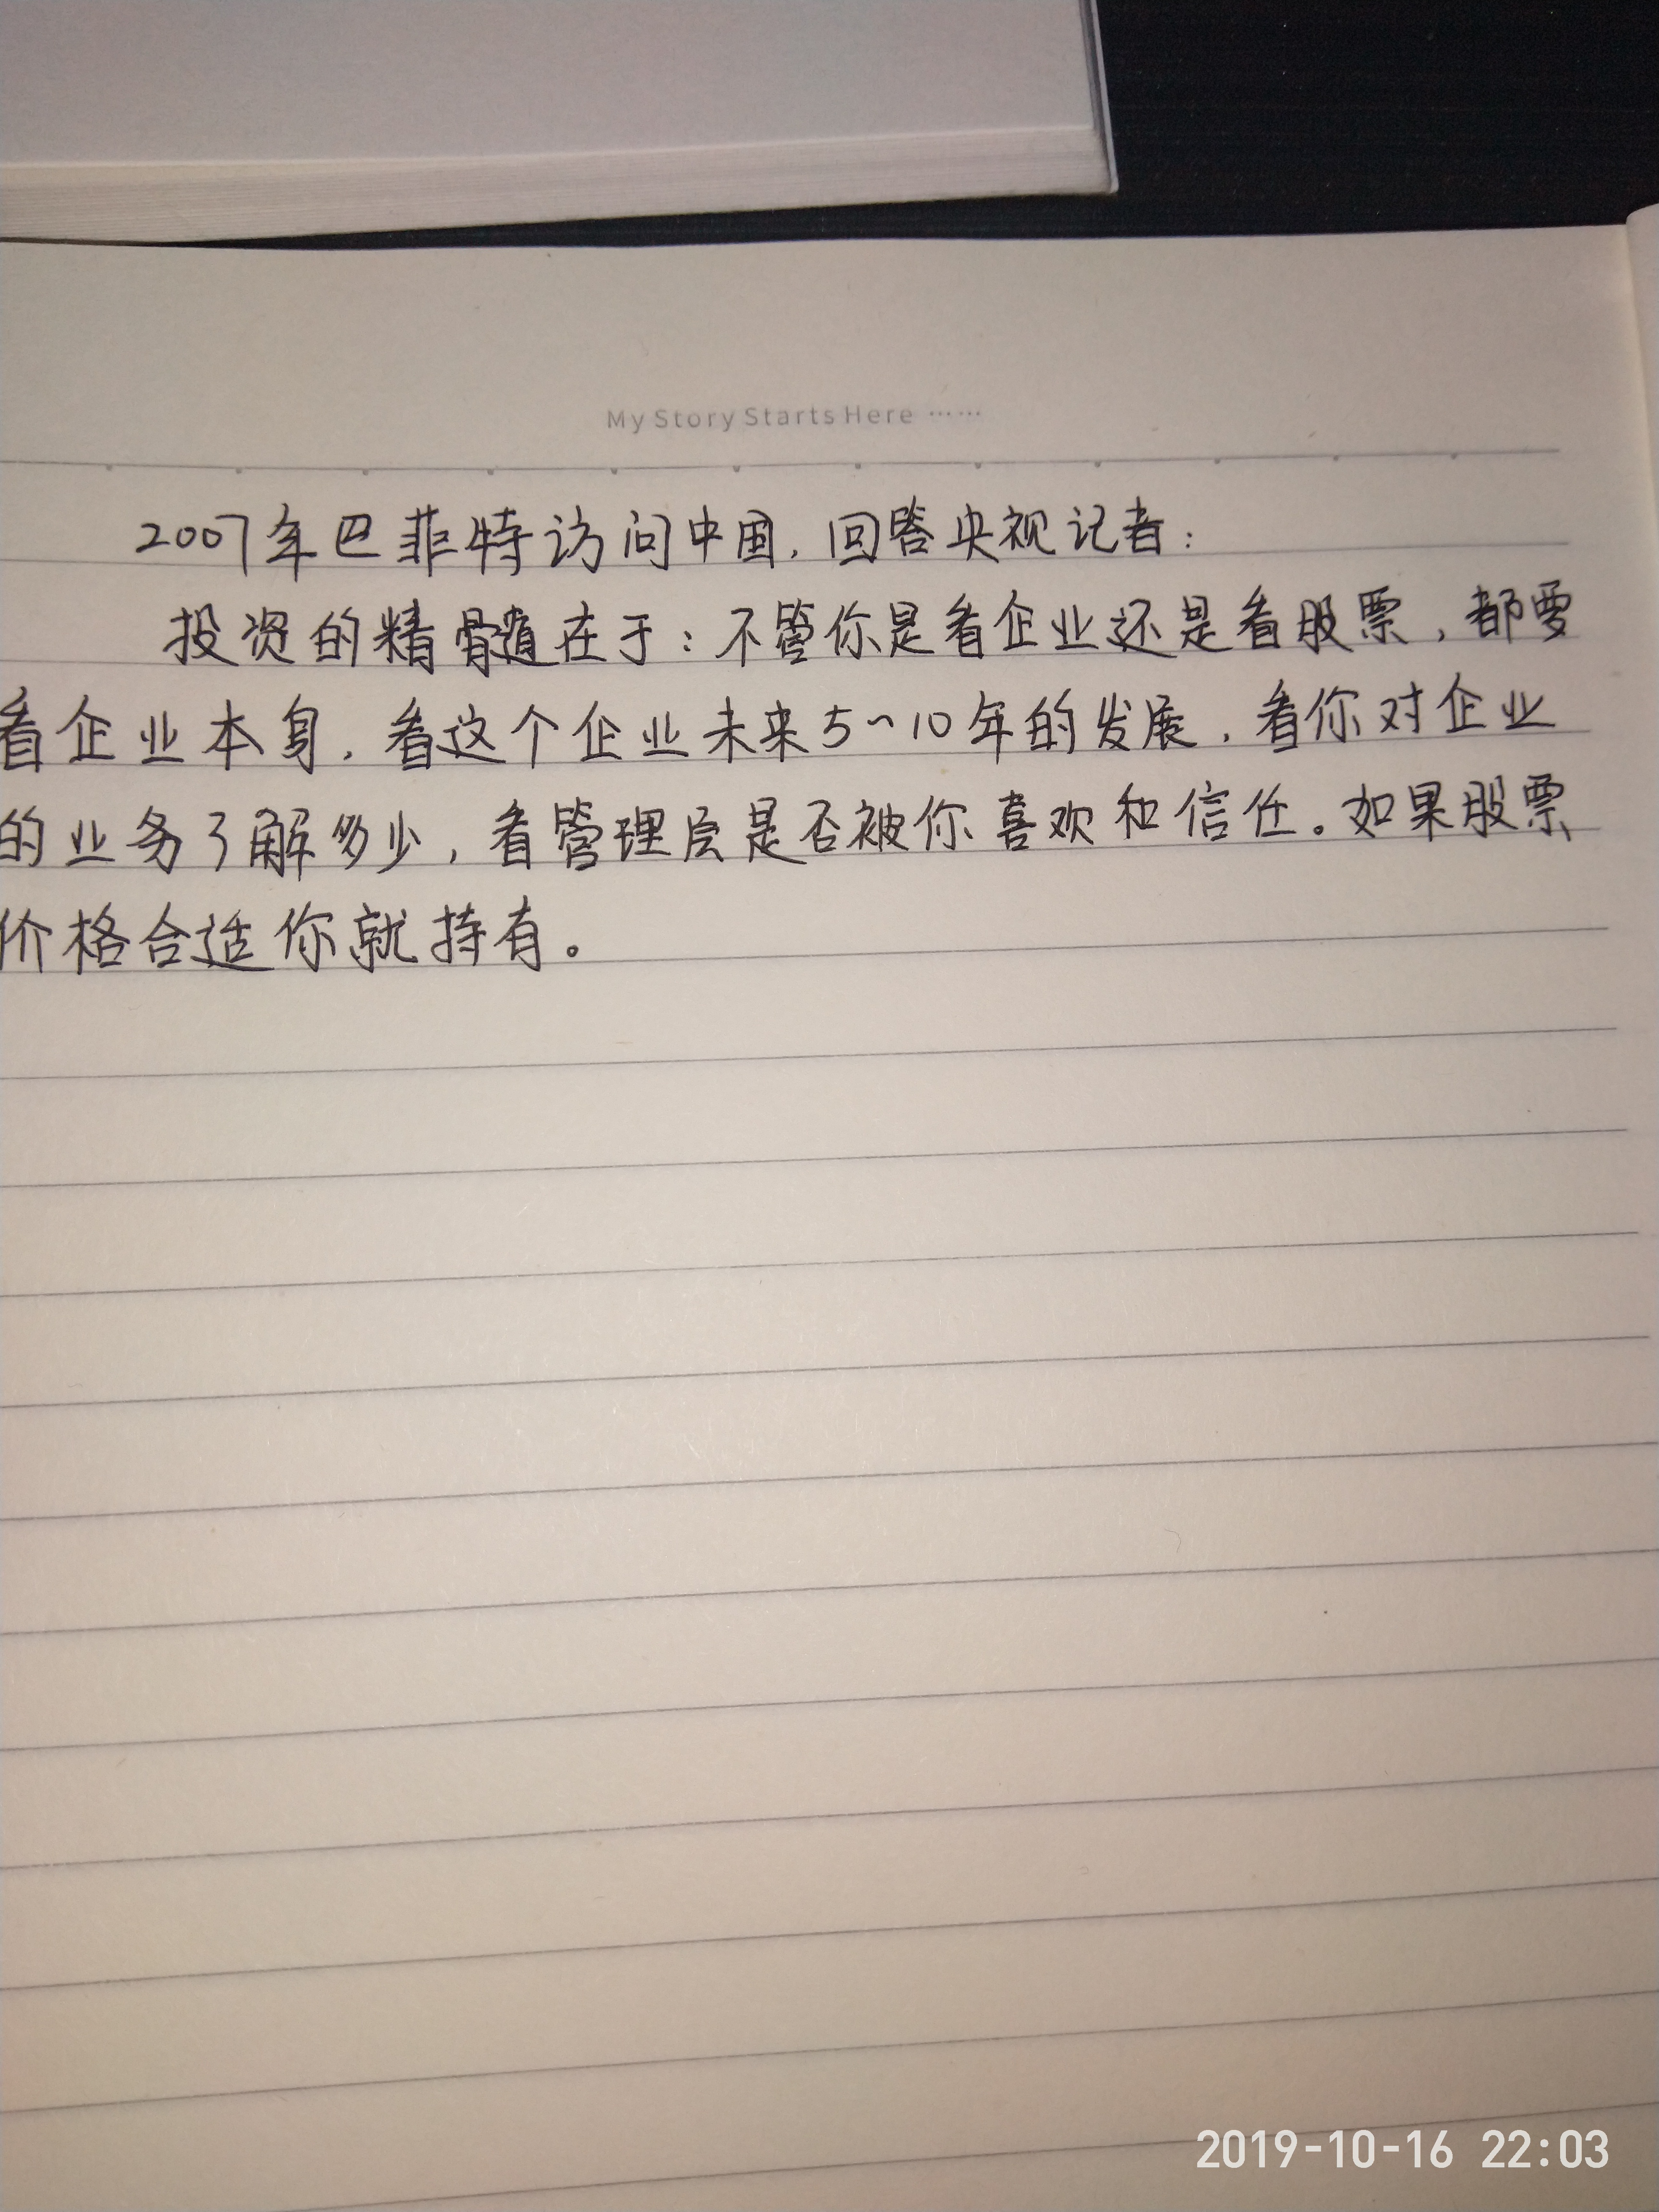 My Story Starts Here ⋯⋯
2007年巴菲特访问中国，回答央视记者：
投资的精髓在于：不管你是看企业还是看股票，都要
看企业本身，看这个企业未来5~10年的发展，看你对企业
的业务了解多少，看管理层是否被你喜欢和信任。如果股票
价格合适你就持有。
2019-10-16 22:03